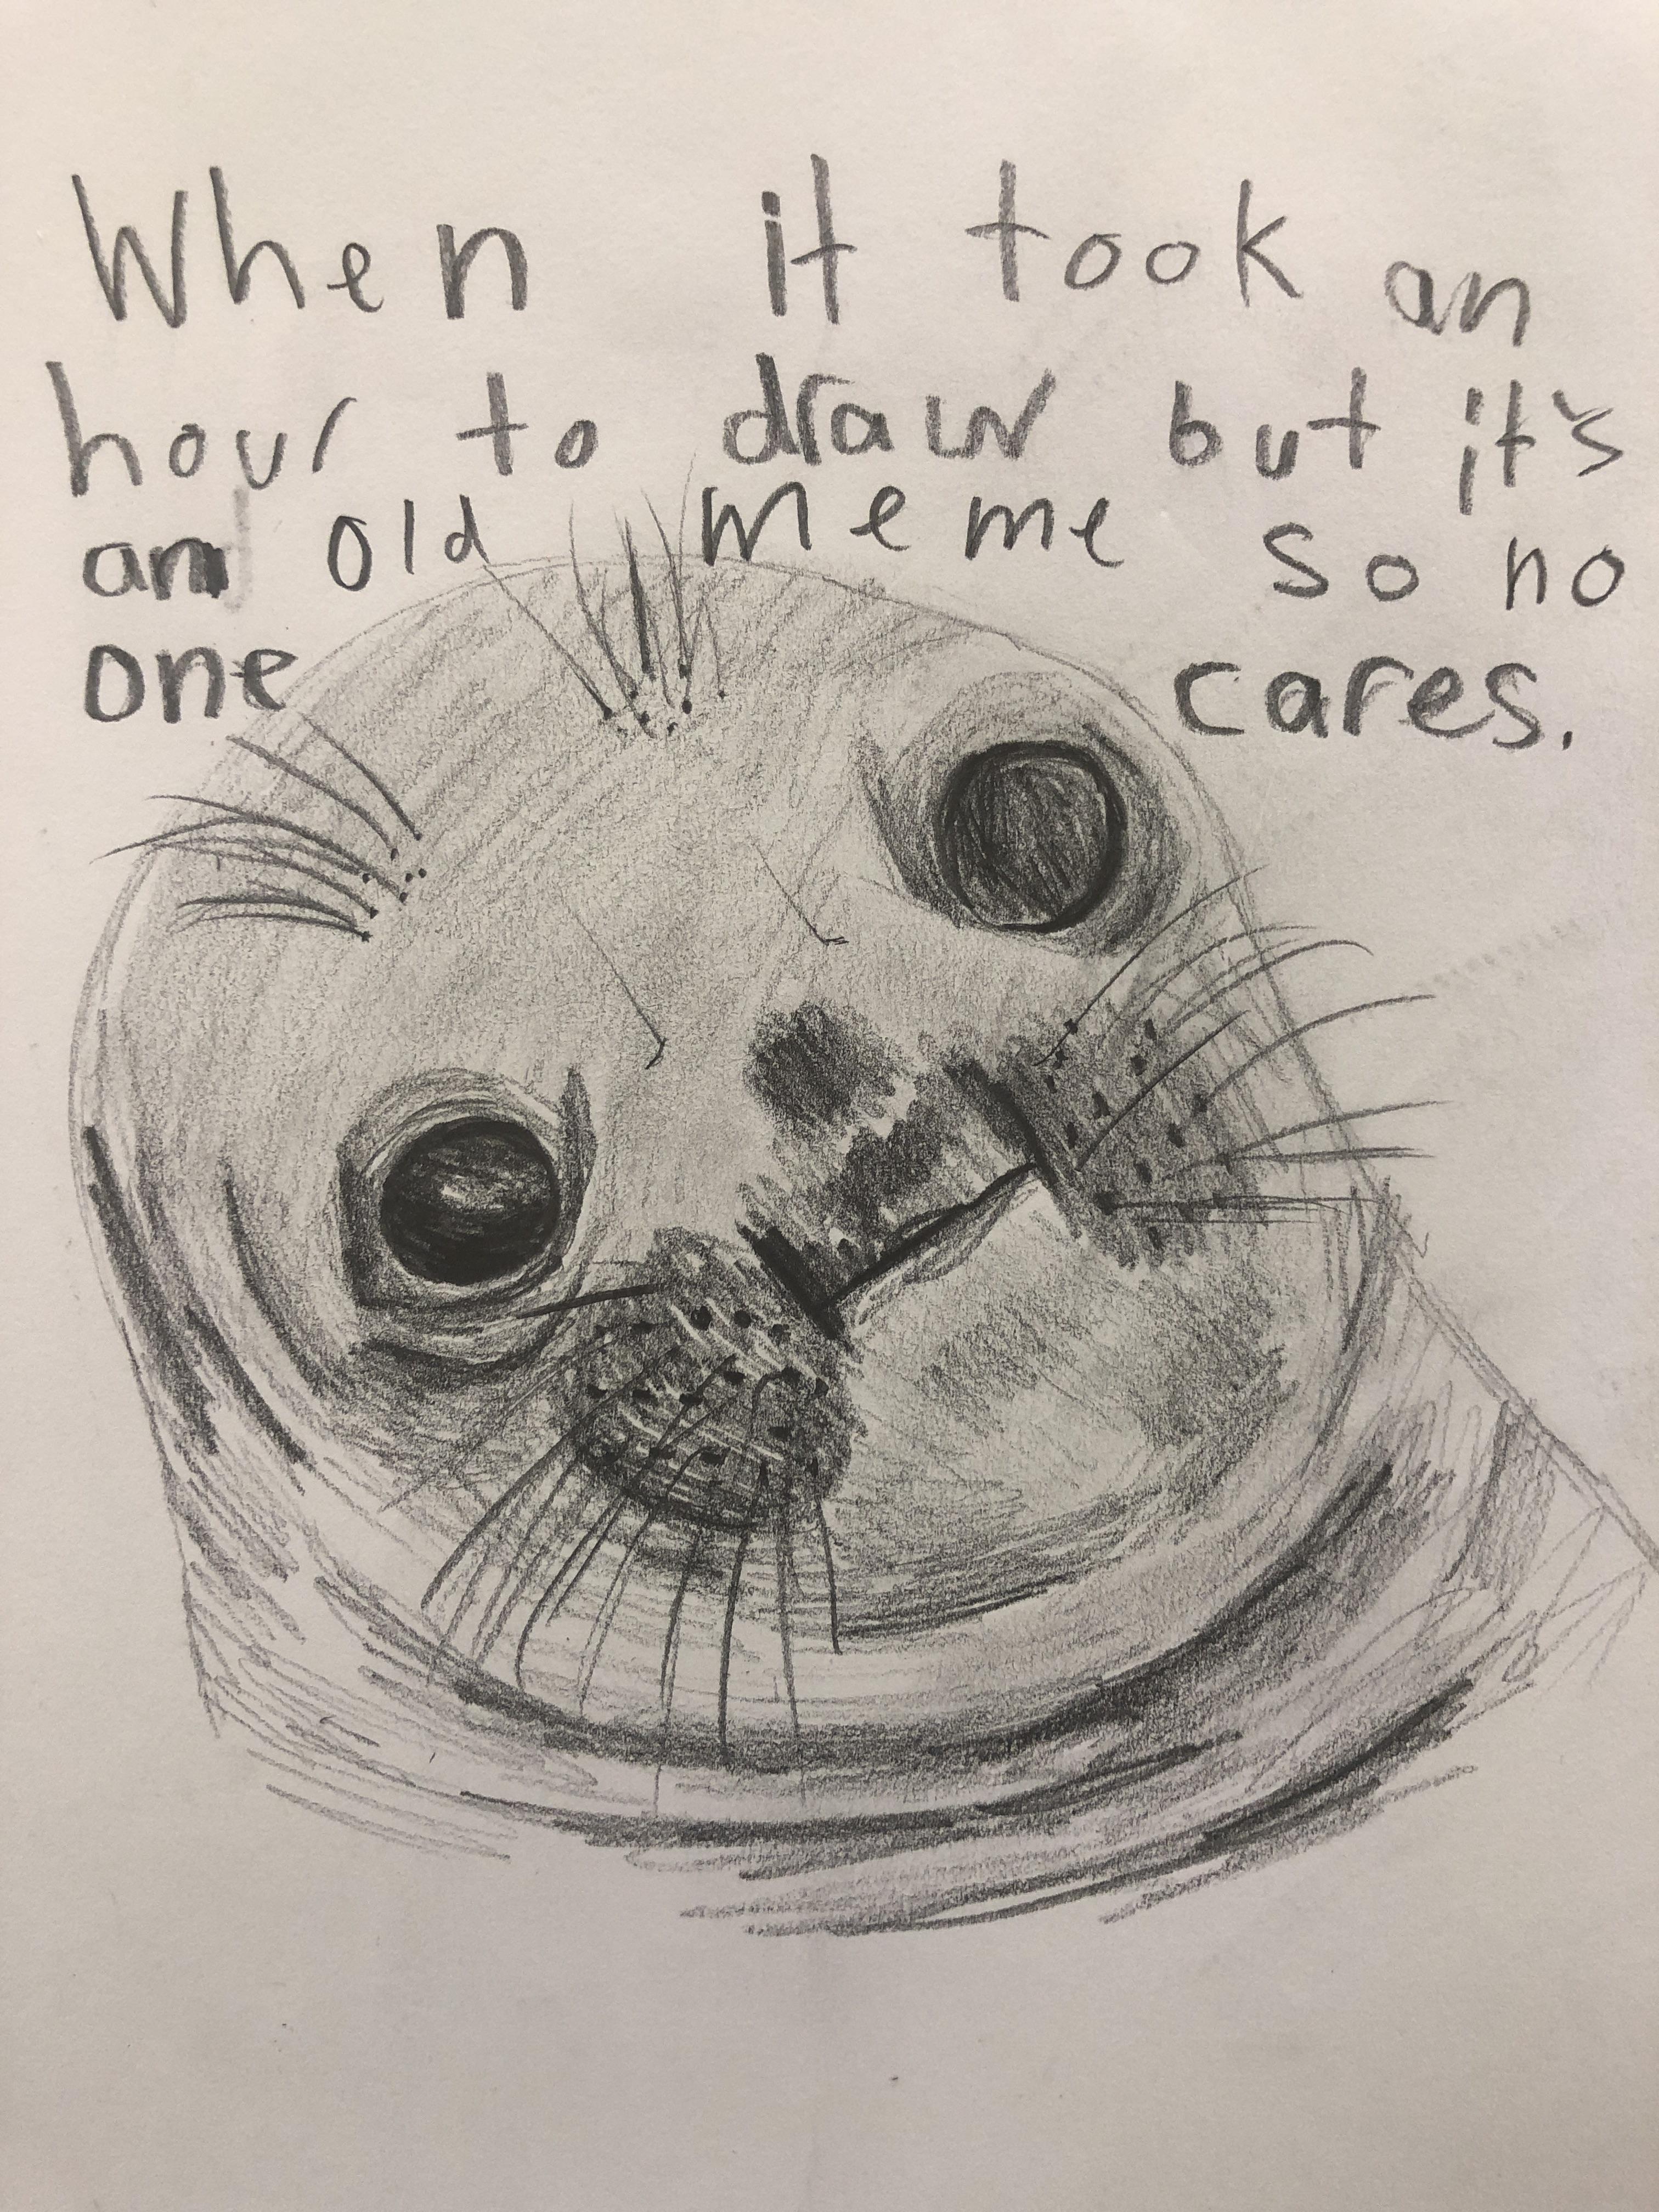 When it took an
hour to draw but it's
an old meme so no
one cares.